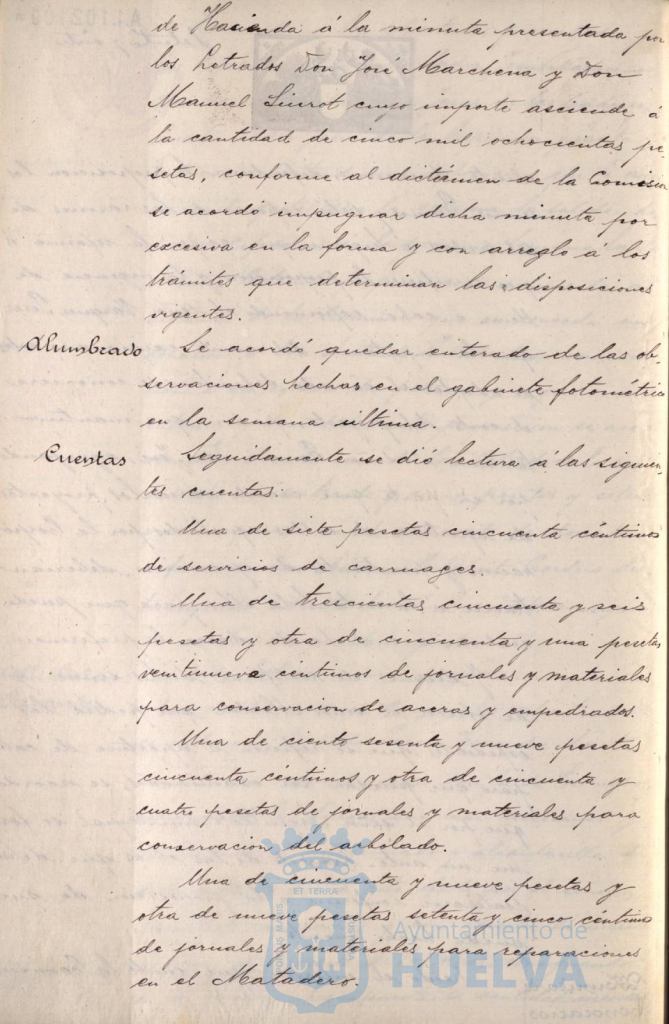 de Hacienda á la minuta presentada por
los Letrados Don José Marchena y Don
Manuel Siurot cuyo importe asciende á
la cantidad de cinco mil ochocientas pe
setas, conforme al dictámen de la Comision
se acordó impugnar dicha minuta por
excesiva en la forma y con arreglo á los
trámites que determinan las disposiciones
vigentes.
Alumbrado Se acordó quedar enterado de las ob-
servaciones hechas en el gabinete fotométrico
en la semana última.
Cuentas Seguidamente se dió lectura á las siguien-
tes cuentas:
Una de siete pesetas cincuenta céntimos
de servicios de carruages.
Una de trescientas cincuenta y seis
pesetas y otra de cincuenta y una pesetas
veintinueve céntimos de jornales y materiales
para conservacion de aceras y empedrados.
Una de ciento sesenta y nueve pesetas
cincuenta céntimos y otra de cincuenta y
cuatro pesetas de jornales y materiales para
conservacion del arbolado.
Una de cincuenta y nueve pesetas y
otra de nueve pesetas setenta y cinco céntimos
de jornales y materiales para reparaciones
en el Matadero.
ET TERRA
Ayuntamiento de
HUELVA